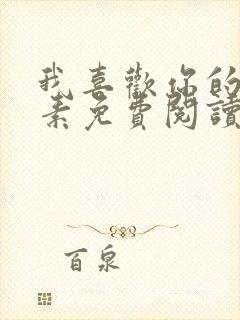 我喜歡你的
素免費閱讀
百泉